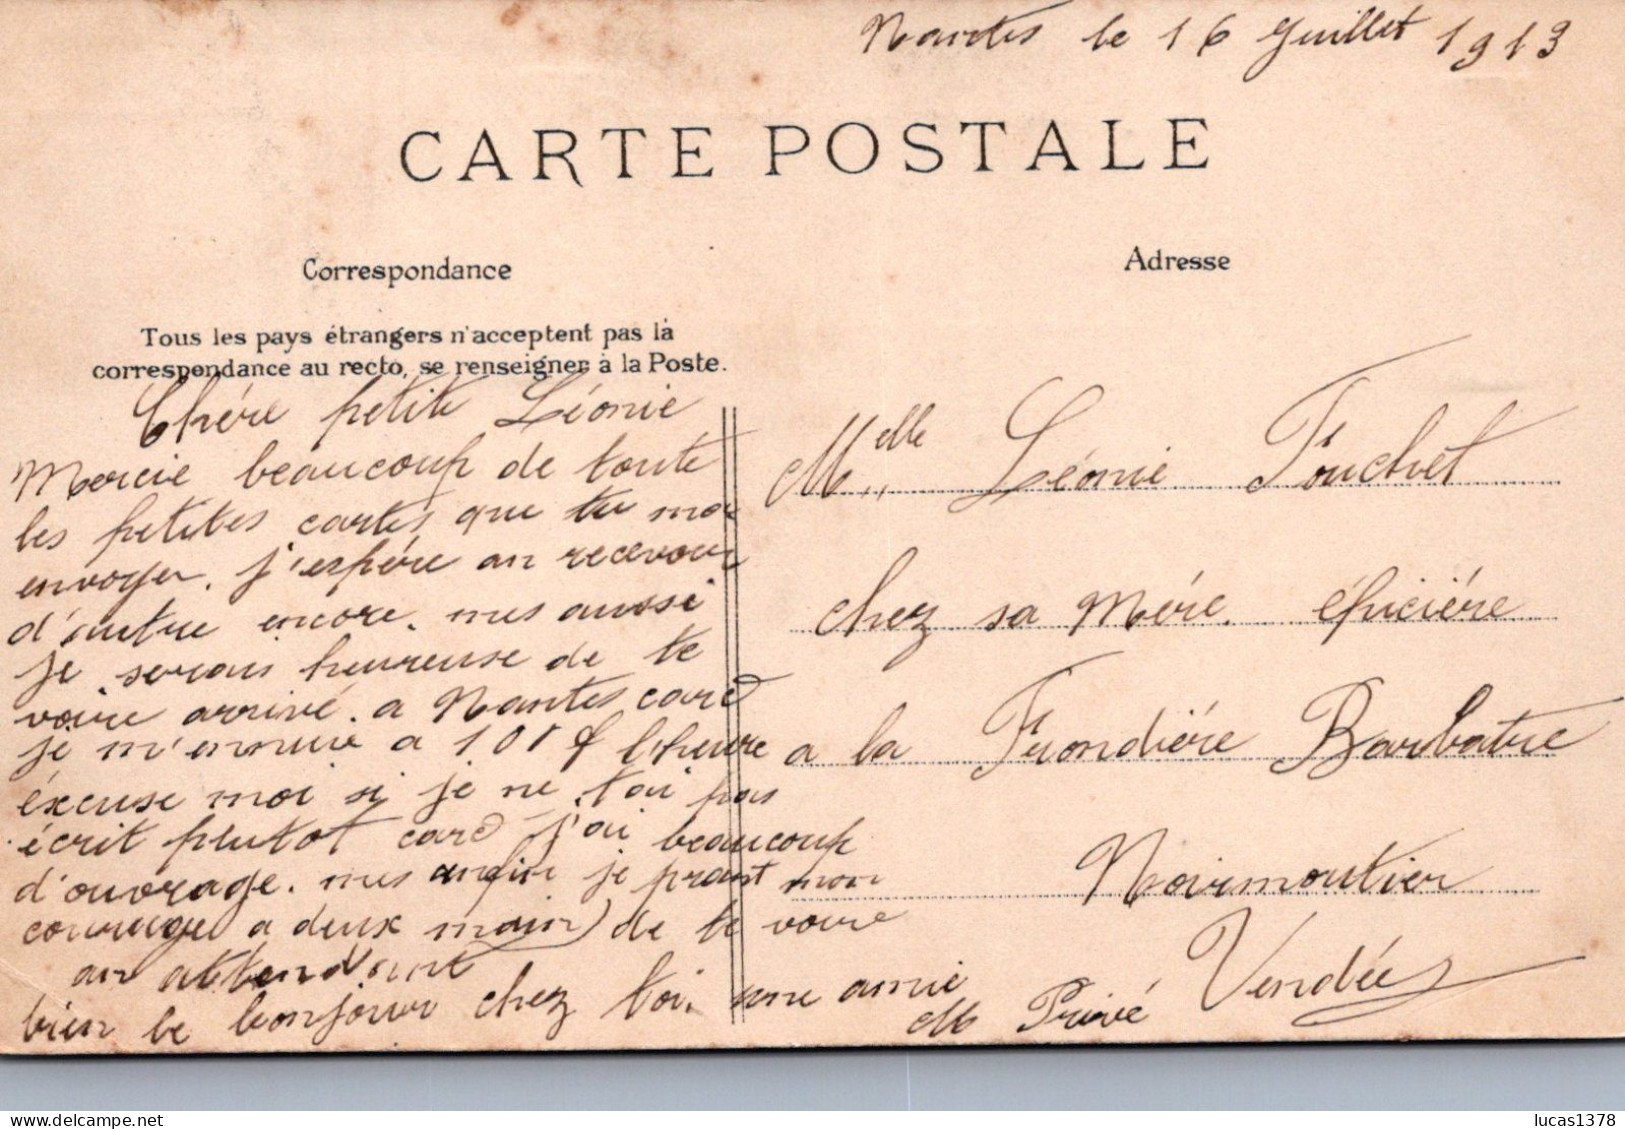 Nantes le 16 Juillet 1913
CARTE POSTALE
Correspondance
Tous les pays étrangers n'acceptent pas la
correspondance au recto, se renseigner à la Poste.
Chére petite Léonie
Mercie beaucoup de toute
les petites cartes que tu moi
envoyer. j'espére an recevoir
d'autre encore. mes aussi
je serais heureuse de te
voire arrivé. a Nantes care
je m'ennuie a 101 f l'heure
éxcuse moi si je ne toi pas
écrit plutot care j'ai beaucoup
d'ouvrage. mes anfin je prant mon
courage a deux main) de te voire
an attendant
bien le bonjour chez toi. une amie
M Privé
Adresse
Melle Léonie Fouchet
chez sa Mére. épiciére
a la Frondiére Barbatre
Noirmoutier
Vendée
lucas1378